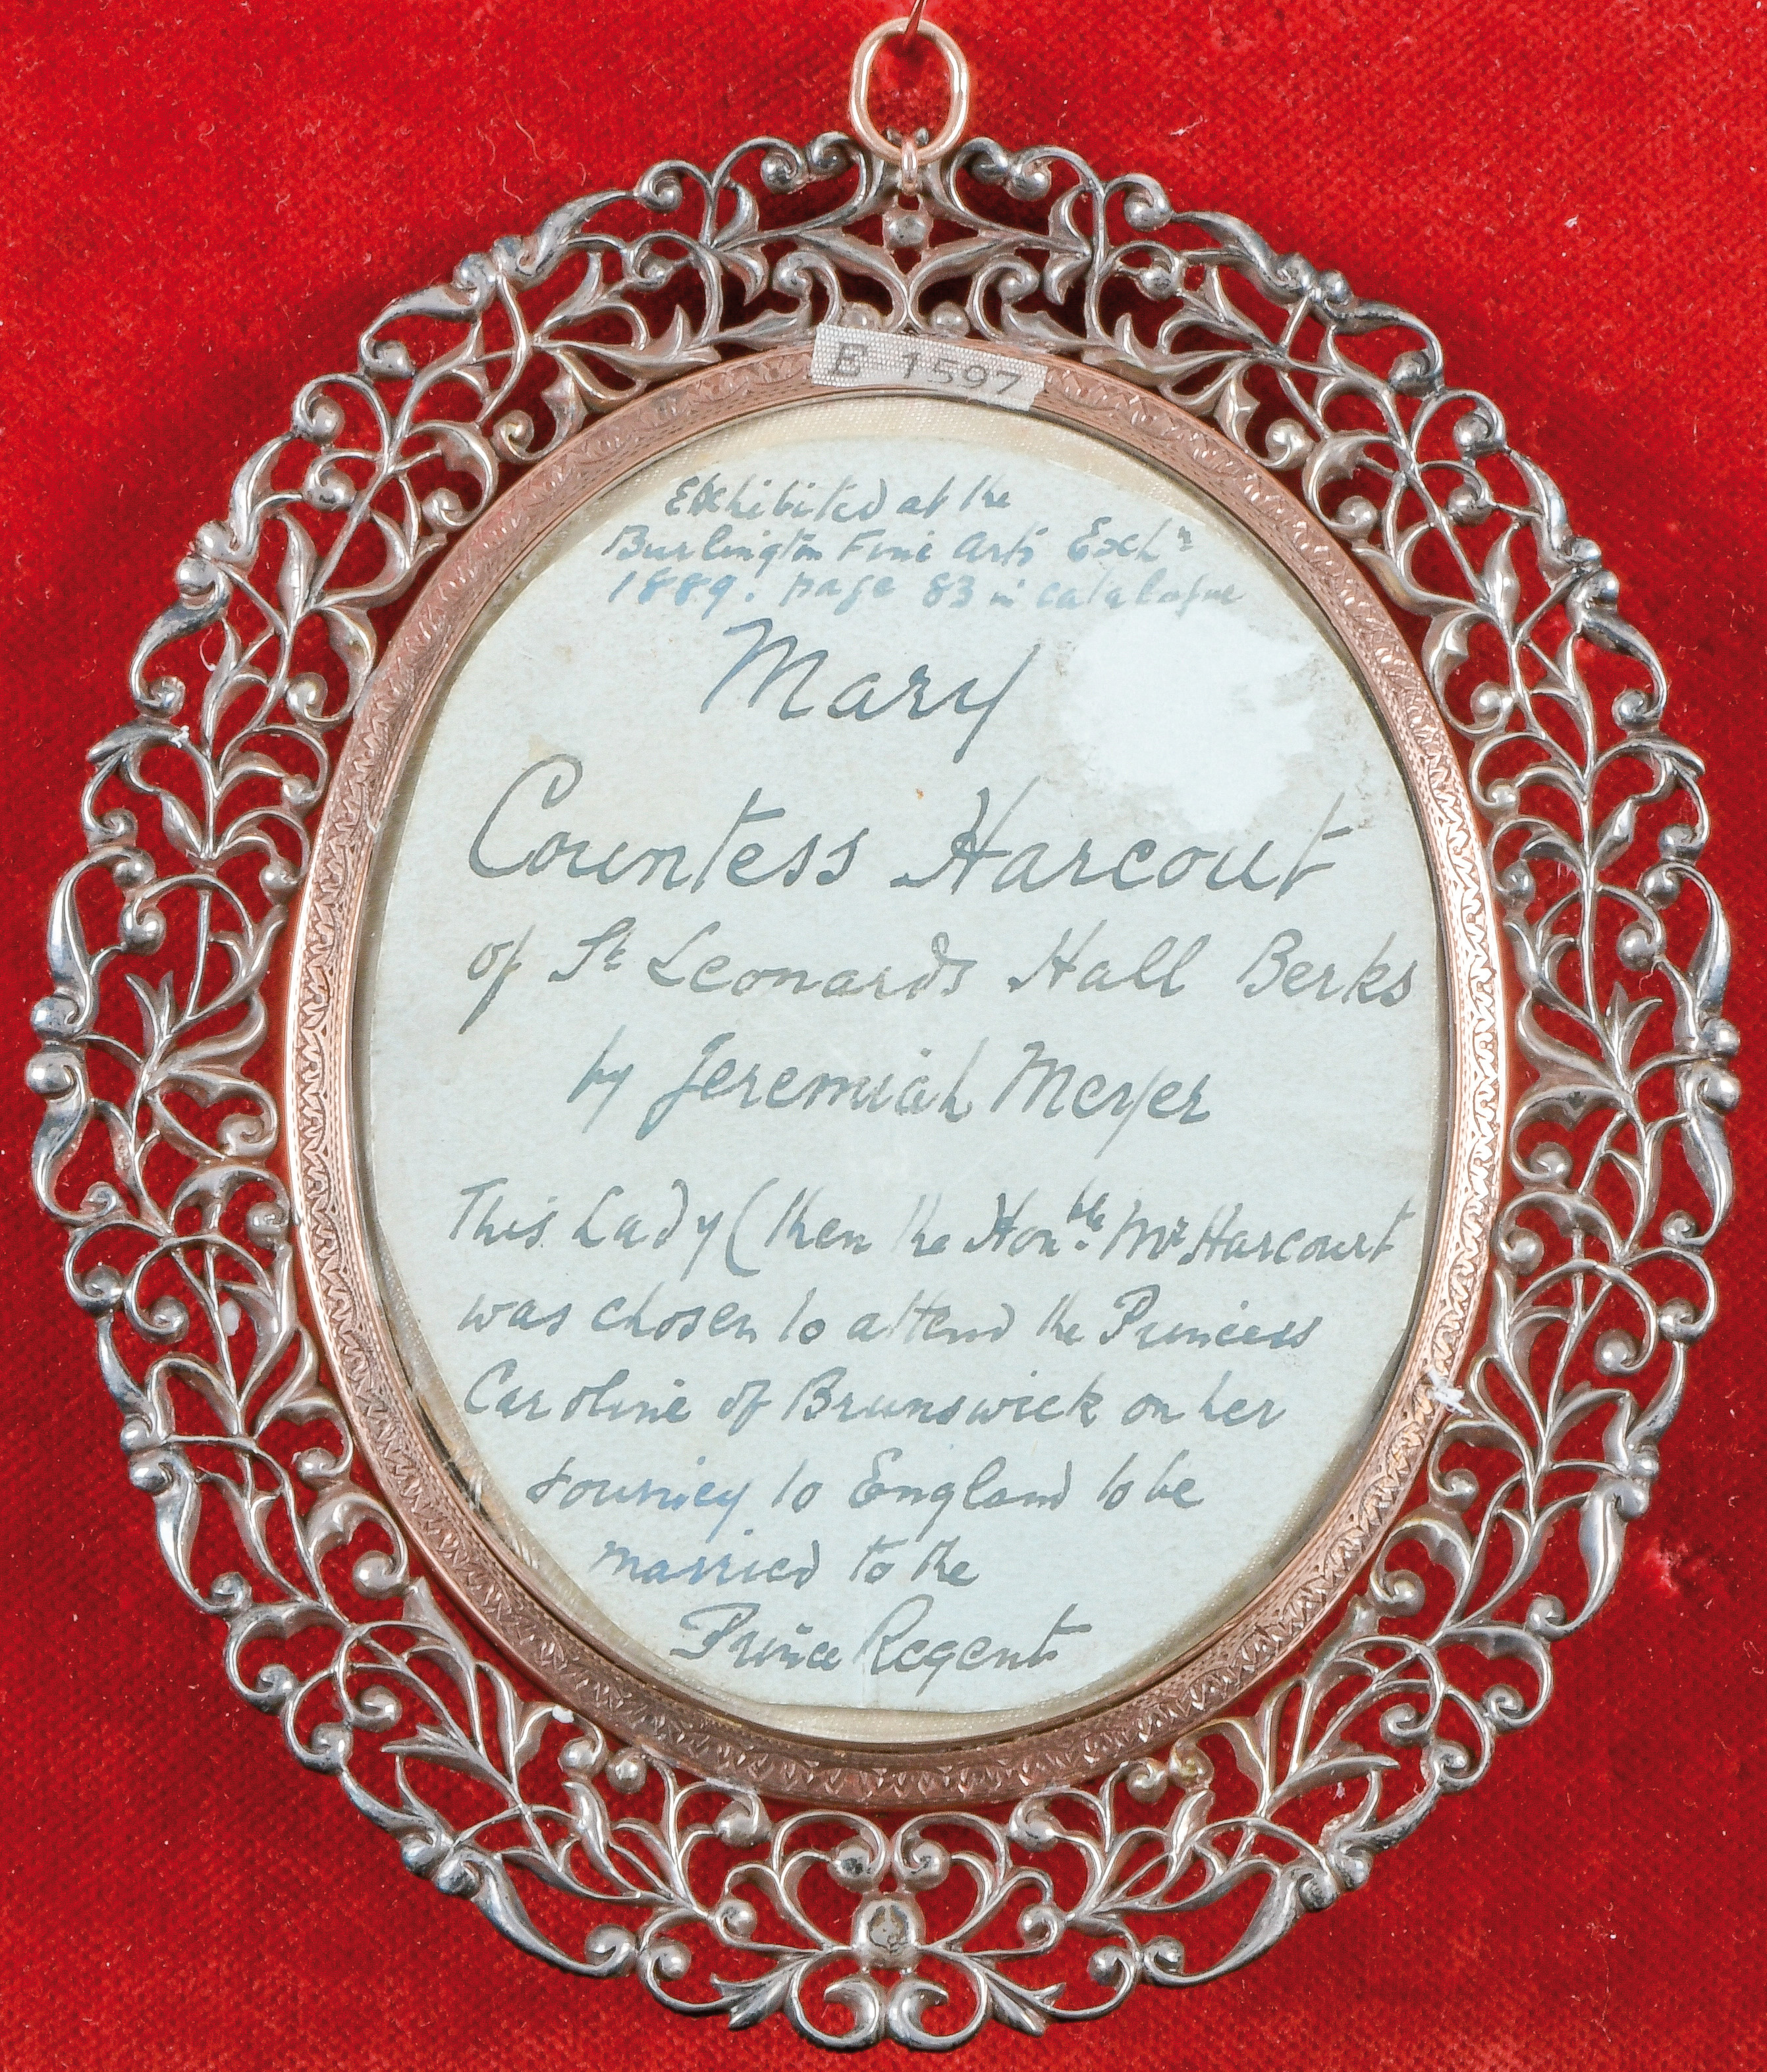 E 1597
Exhibited at the
Burlington Fine Arts Exhn
1889. page 83 in catalogue
Mary
Countess Harcout
of St Leonards Hall Berks
by Jeremiah Meyer
This Lady (then the Honble. Mrs Harcourt
was chosen to attend the Princess
Caroline of Brunswick on her
journey to England to be
married to the
Prince Regent